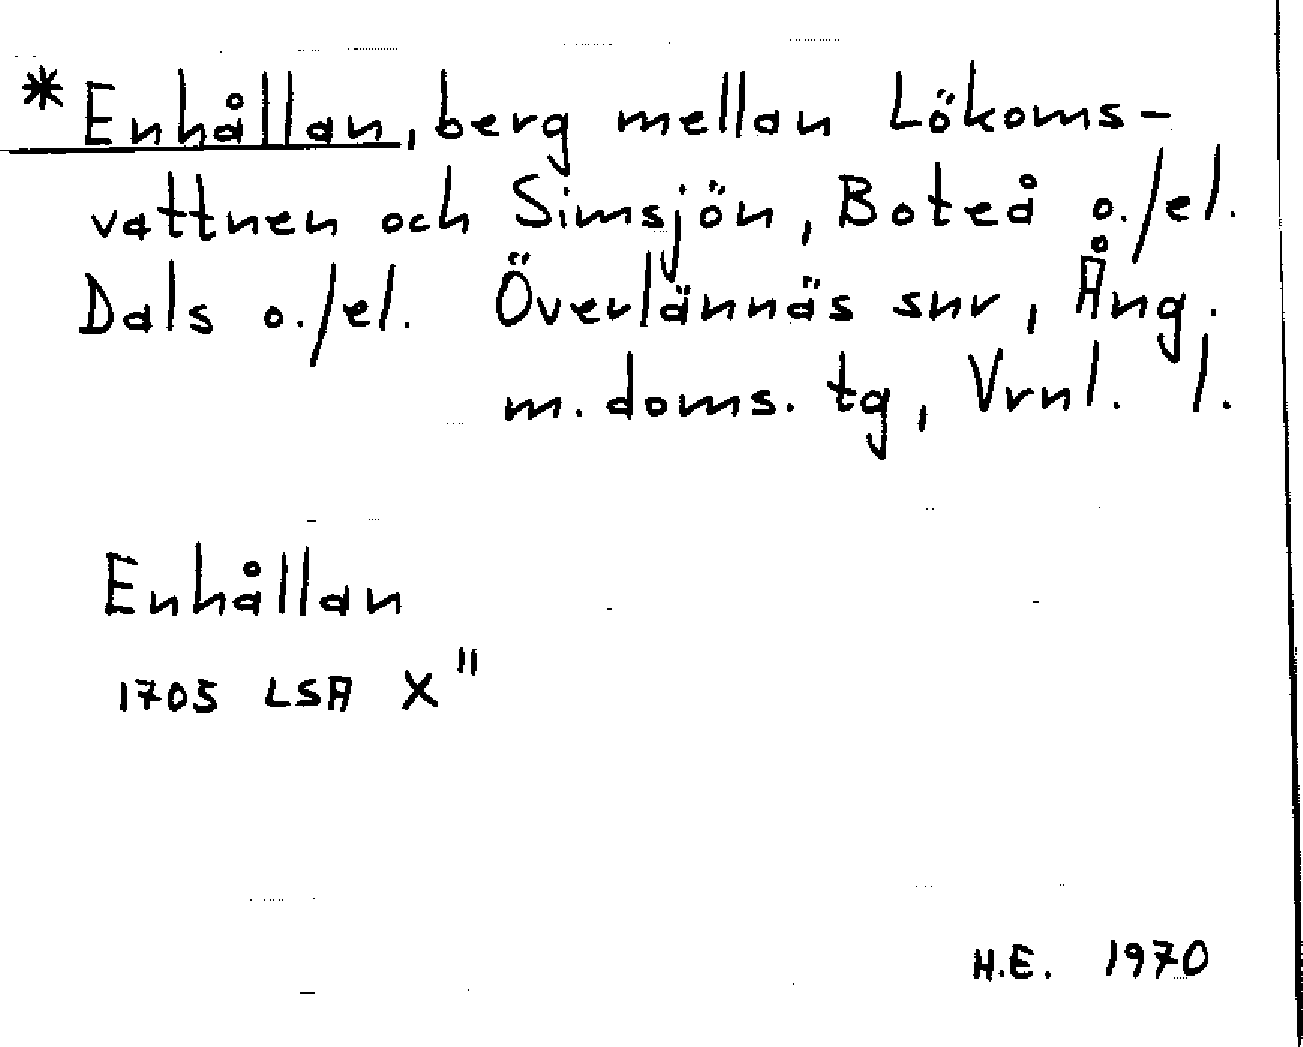 * Enhållan, berg mellan Lökoms-
vattnen och Simsjön, Boteå o./el.
Dals o./el. Överlännäs snr, Ång.
m. doms. tg, Vrnl. l.
Enhållan
1705 LSA X"
H.E. 1970